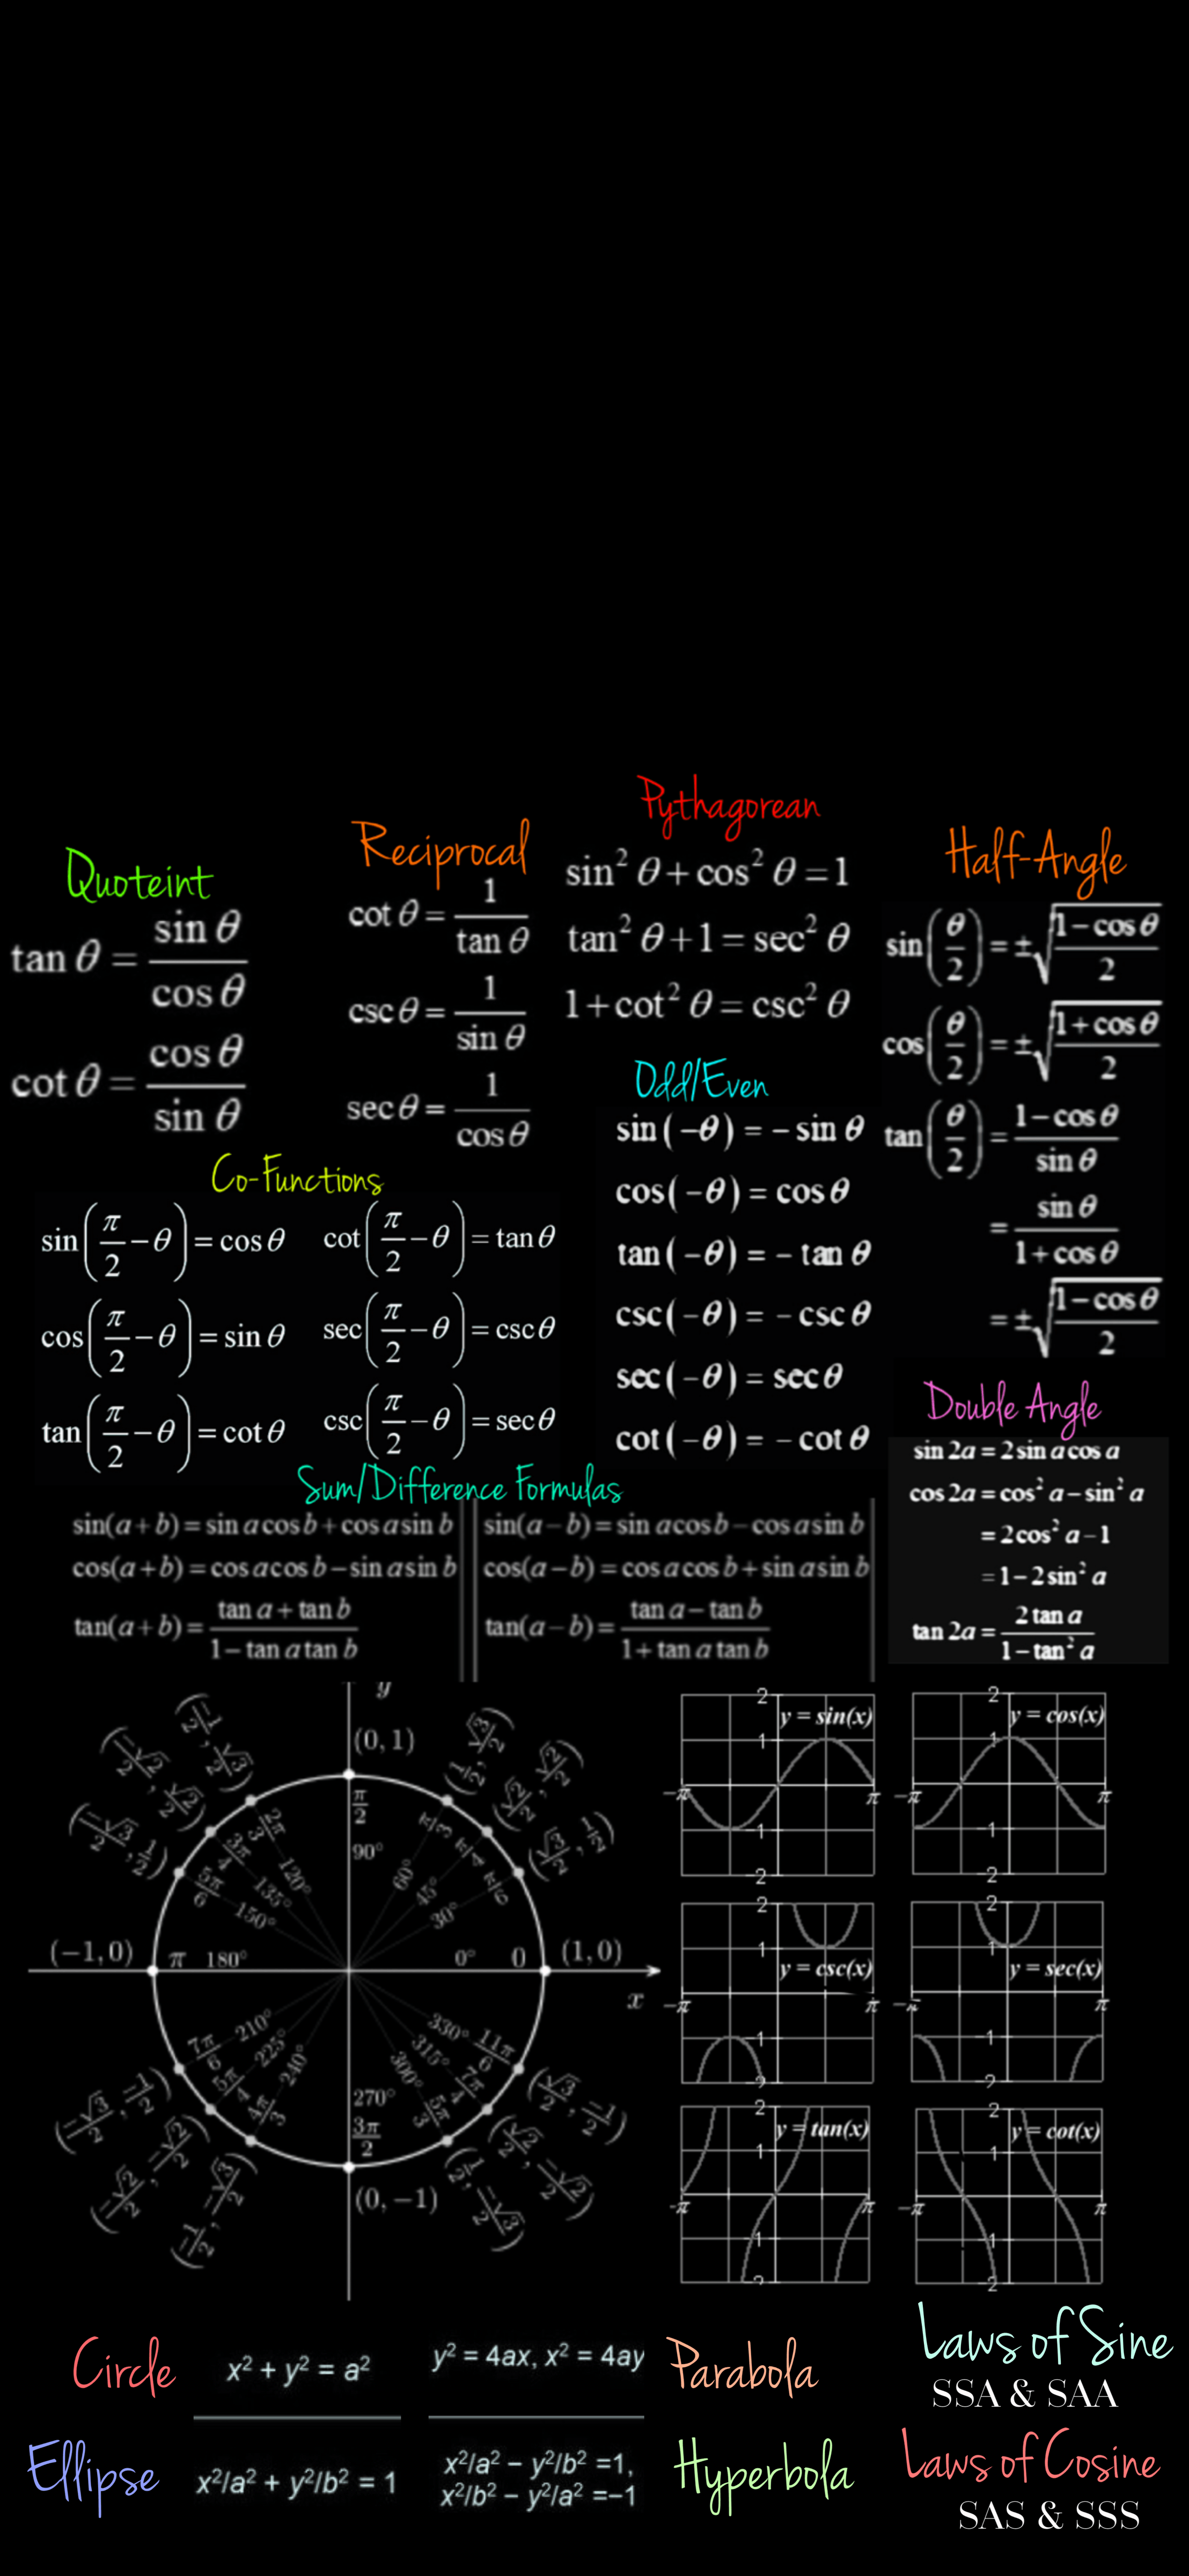 Quoteint
tan θ = sin θ / cos θ
cot θ = cos θ / sin θ
Reciprocal
cot θ = 1 / tan θ
csc θ = 1 / sin θ
sec θ = 1 / cos θ
Pythagorean
sin² θ + cos² θ = 1
tan² θ + 1 = sec² θ
1 + cot² θ = csc² θ
Half-Angle
sin(θ/2) = ±√((1 − cos θ)/2)
cos(θ/2) = ±√((1 + cos θ)/2)
tan(θ/2) = (1 − cos θ) / sin θ
= sin θ / (1 + cos θ)
= ±√((1 − cos θ)/2)
Odd/Even
sin(−θ) = − sin θ
cos(−θ) = cos θ
tan(−θ) = − tan θ
csc(−θ) = − csc θ
sec(−θ) = sec θ
cot(−θ) = − cot θ
Co-Functions
sin(π/2 − θ) = cos θ
cos(π/2 − θ) = sin θ
tan(π/2 − θ) = cot θ
cot(π/2 − θ) = tan θ
sec(π/2 − θ) = csc θ
csc(π/2 − θ) = sec θ
Double Angle
sin 2a = 2 sin a cos a
cos 2a = cos² a − sin² a
= 2 cos² a − 1
= 1 − 2 sin² a
tan 2a = 2 tan a / (1 − tan² a)
Sum/Difference Formulas
sin(a + b) = sin a cos b + cos a sin b
cos(a + b) = cos a cos b − sin a sin b
tan(a + b) = (tan a + tan b) / (1 − tan a tan b)
sin(a − b) = sin a cos b − cos a sin b
cos(a − b) = cos a cos b + sin a sin b
tan(a − b) = (tan a − tan b) / (1 + tan a tan b)
y
(0, 1)
π/2
90°
(1/2, √3/2)
π/3
60°
(√2/2, √2/2)
π/4
45°
(√3/2, 1/2)
π/6
30°
(1, 0)
0
0°
x
(−1/2, √3/2)
2π/3
120°
(−√2/2, √2/2)
3π/4
135°
(−√3/2, 1/2)
5π/6
150°
(−1, 0)
π
180°
7π/6
210°
(−√3/2, −1/2)
5π/4
225°
(−√2/2, −√2/2)
4π/3
240°
(−1/2, −√3/2)
270°
3π/2
(0, −1)
5π/3
300°
(1/2, −√3/2)
7π/4
315°
(√2/2, −√2/2)
11π/6
330°
(√3/2, −1/2)
2
y = sin(x)
1
−π
π
−1
−2
2
y = cos(x)
1
−π
π
−1
−2
2
1
y = csc(x)
−π
π
−1
−2
2
1
y = sec(x)
−π
π
−1
−2
2
y = tan(x)
1
-π
π
−1
−2
2
y = cot(x)
1
−π
π
−1
−2
Circle
x² + y² = a²
y² = 4ax, x² = 4ay
Parabola
Ellipse
x²/a² + y²/b² = 1
x²/a² − y²/b² =1,
x²/b² − y²/a² =−1
Hyperbola
Laws of Sine
SSA & SAA
Laws of Cosine
SAS & SSS